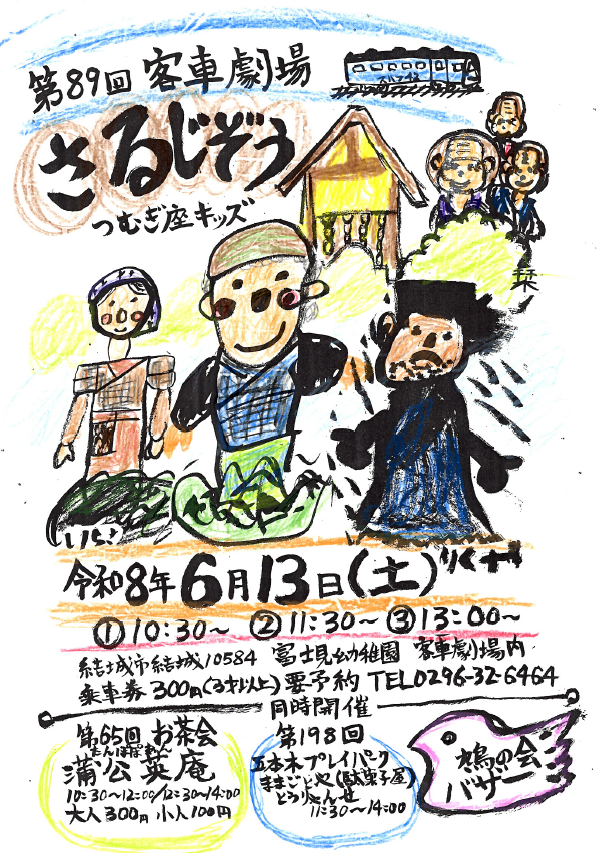 第89回 客車劇場
スハフ42
さるじぞう
つむぎ座キッズ
栞
いちご
りくと
令和8年6月13日(土)
①10:30~ ②11:30~ ③13:00~
結城市結城10584 富士見幼稚園 客車劇場内
乗車券300円(3才以上)要予約 TEL0296-32-6464
同時開催
第65回 お茶会
たんぽぽあん
蒲公英庵
10:30~12:00/12:30~14:00
大人300円 小人100円
第198回
五本木プレイパーク
ままごとや(駄菓子屋)
11:30~14:00
鳩の会
バザー